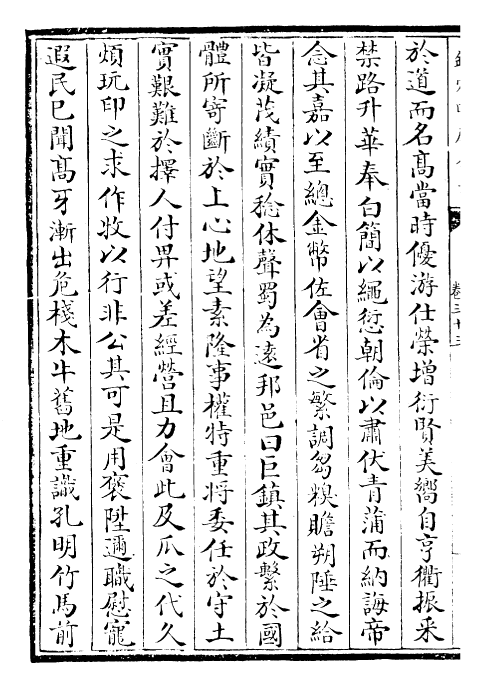 於道而名髙當時優游仕榮增衍賢美嚮自亨衢振采
禁路升華奉白簡以繩愆朝倫以肅伏青蒲而納誨帝
念其嘉以至總金幣佐㑹省之繁調芻糗贍朔陲之給
皆凝茂績實稔休聲蜀為遠邦邑曰巨鎮其政繫於國
體所寄斷於上心地望素隆事權特重將委任於守土
實艱難於擇人付畀或差經營且力㑹此及瓜之代久
煩玩印之求作牧以行非公其可是用褒陞邇職慰寵
遐民已聞髙牙漸出危棧木牛舊地重識孔明竹馬前
卷三十三